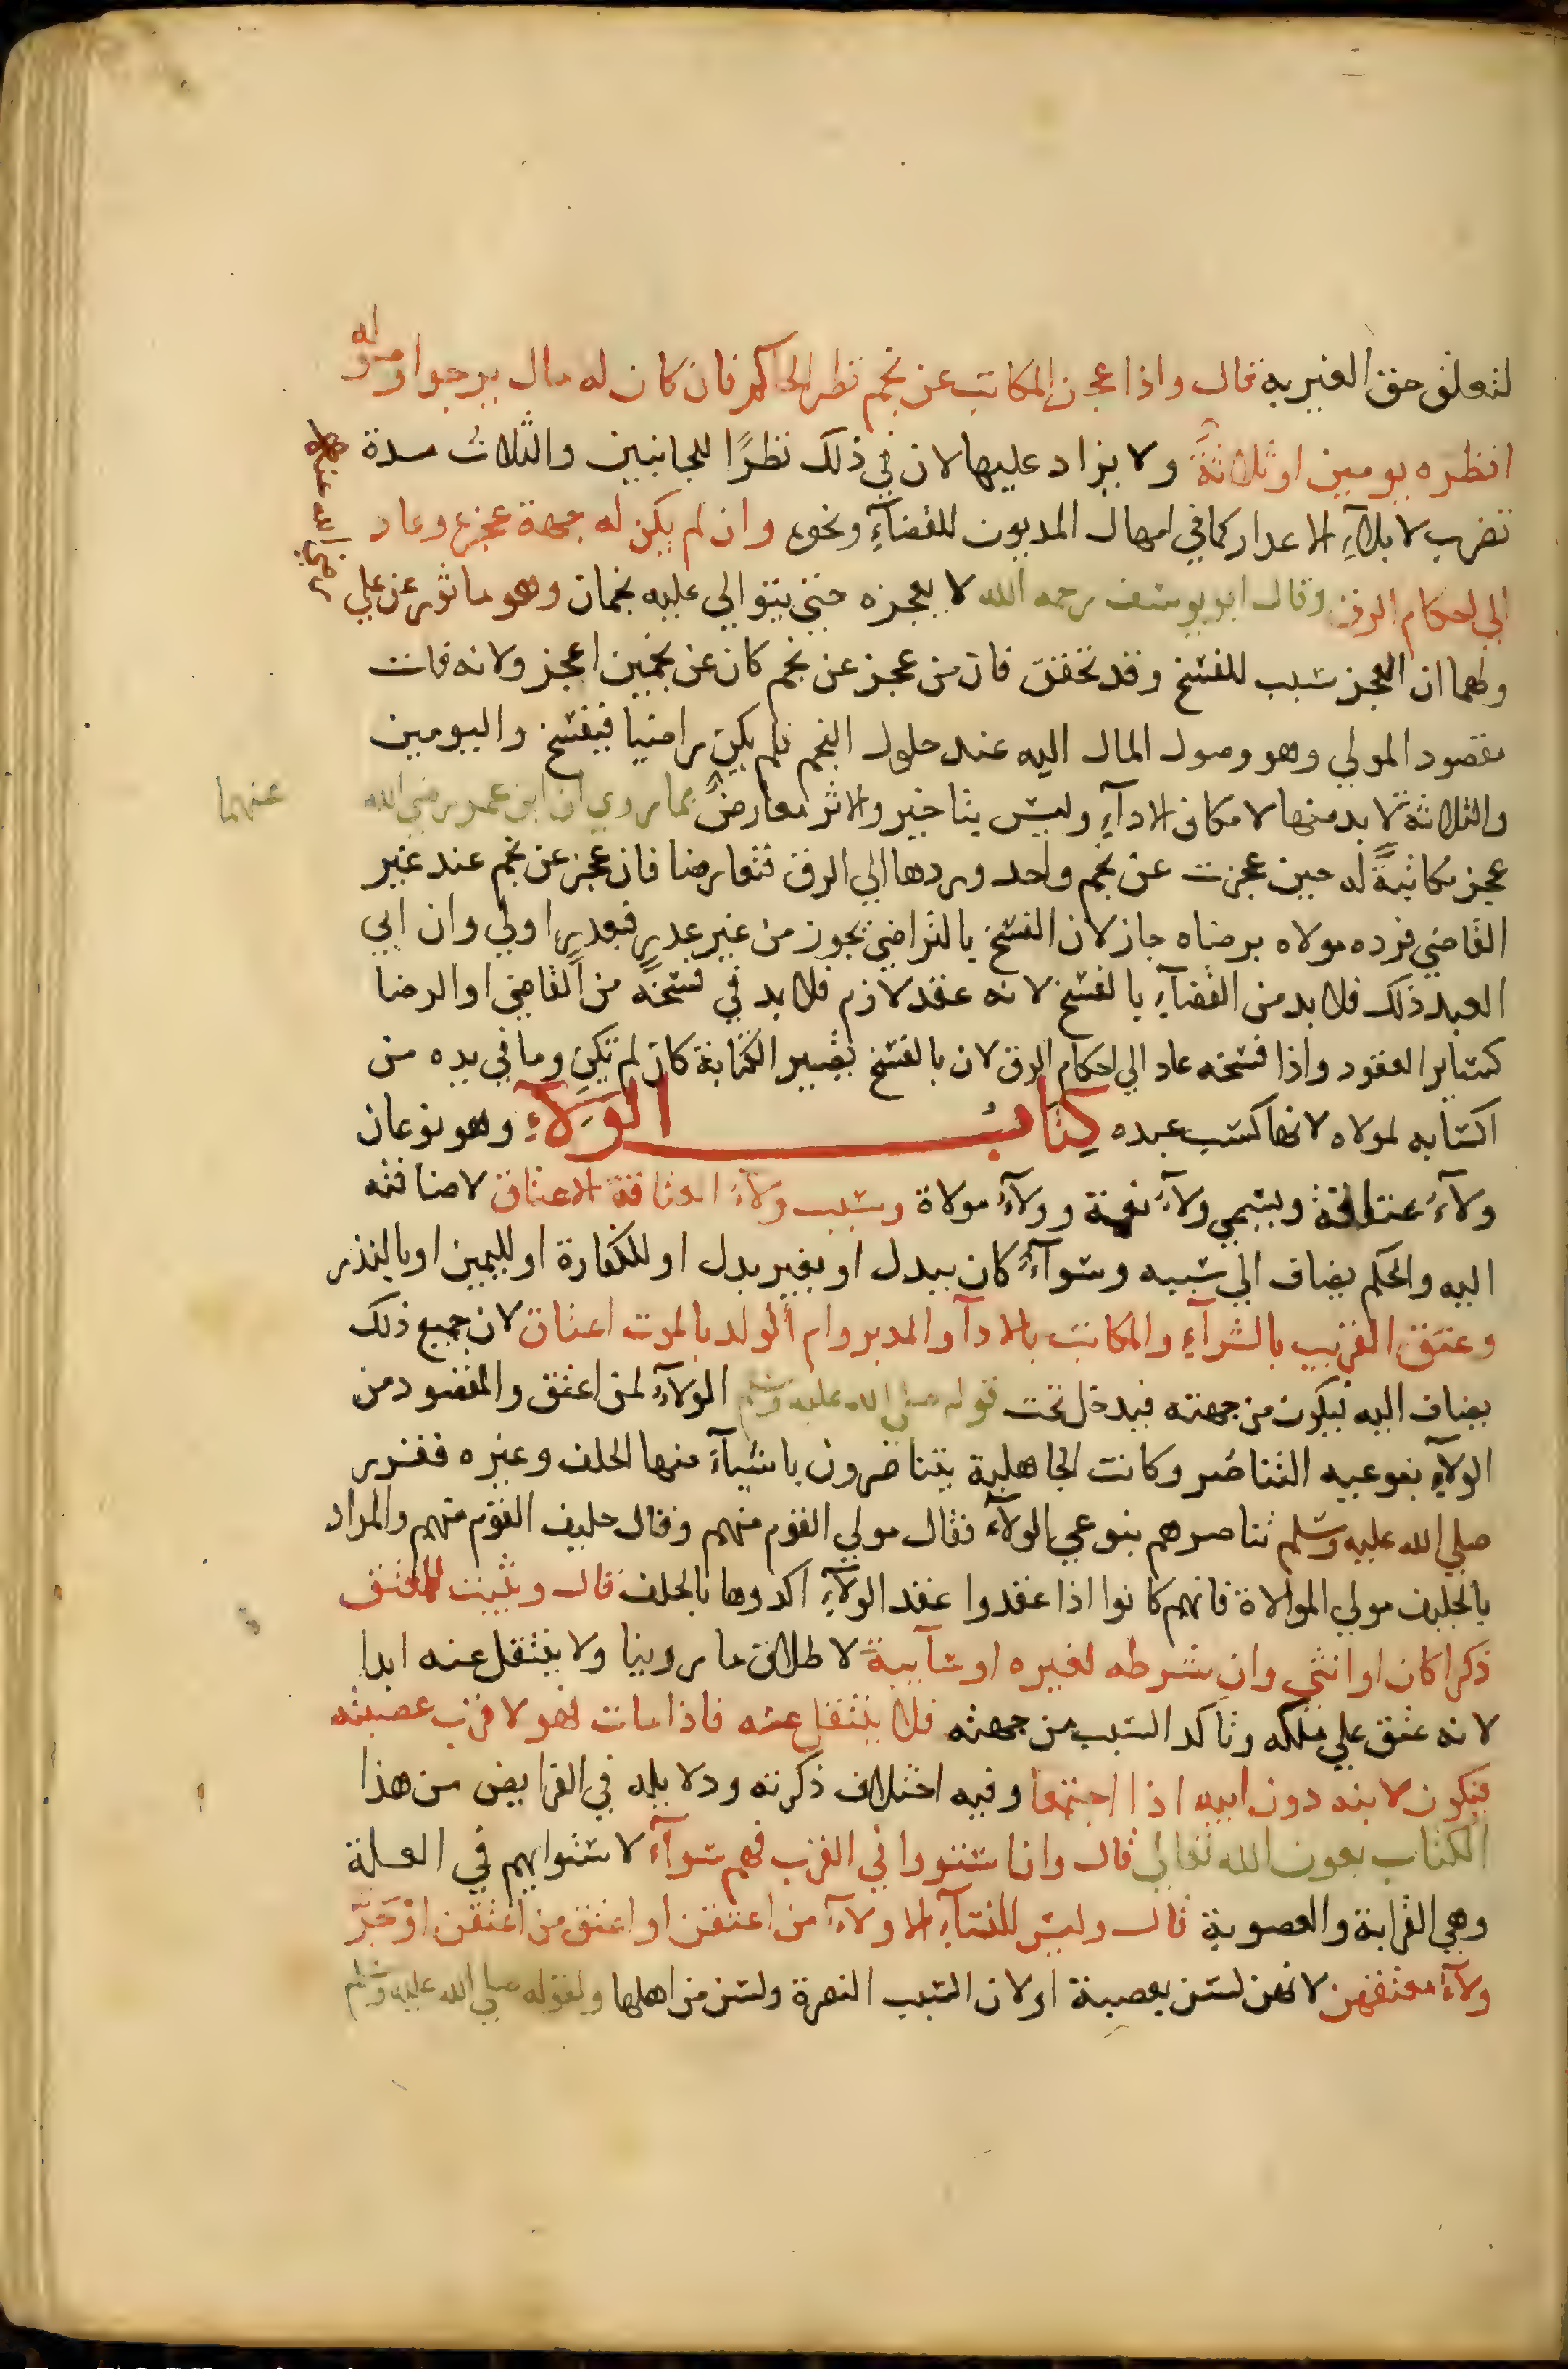 لتعلق حق الغير به قال واذا عجز المكاتب عن نجم نظر الحاكم فان كان له مال يرجوا وصوله
انظره يومين او ثلاثة ولا يزاد عليها لان في ذلك نظرًا للجانبين والثلاث مدة
تضرب لابلآء الاعدار كما في امهال المديون للقضآء ونحوه وان لم يكن له جهة عجزه وعاد
الي احكام الرق وقال ابو يوسف رحمه الله لا يعجزه حتي يتوالي عليه نجمان وهو ماثور عن علي رضي الله عنه
ولهما ان العجز سبب للفسخ وقد تحقق فان من عجز عن نجم كان عن نجمين اعجز ولانه فات
مقصود المولي وهو وصول المال اليه عند حلول النجم فلم يكن راضيا فيفسخ واليومين
والثلاثة لا بد منها لامكان الادآء وليس بتاخير والاثر معارضٌ بما روي ان ابن عمر رضي الله عنهما
عجز مكاتبةً له حين عجزت عن نجم واحد وردها الي الرق فتعارضا فان عجز عن نجم عند غير
القاضي فرده مولاه برضاه جاز لان الفسخ بالتراضي يجوز من غير عدرٍ فبعدرٍ اولي وان ابي
العبد ذلك فلا بد من القضآء بالفسخ لانه عقد لازم فلا بد في فسخه من القاضي او الرضا
كساير العقود واذا فسخه عاد الي احكام الرق لان بالفسخ يصير الكتابة كان لم تكن وما في يده من
اكتسابه لمولاه لانها كسب عبده كتاب الولآء وهو نوعان
ولآءُ عتاقة ويسمي ولآءُ نعمة وولآءُ موالاة وسبب ولآءُ العتاقة الاعتاق لاضافته
اليه والحكم يضاف الي سببه وسوآءٌ كان ببدل او بغير بدل او للكفارة او لليمين او بالنذر
وعتق القريب بالشرآء والمكاتب بالادآ والمدبر وام الولد بالموت اعتاق لان جميع ذلك
يضاف اليه فيكون من جهته فيدخل تحت قوله صلي الله عليه وسلم الولآء لمن اعتق والمقصود من
الولآء بنوعيه التناصر وكانت الجاهلية يتناصرون باشيآءَ منها الحلف وغيره فقرر
صلي الله عليه وسلم تناصرهم بنوعي الولآء فقال مولي القوم منهم وقال حليف القوم منهم والمراد
بالحليف مولي الموالاة فانهم كانوا اذا عقدوا عقد الولآء اكدوها بالحلف قال ويثبت للمعتق
ذكرا كان او انثي وان شرطه لغيره او سآيبة لاطلاق ما روينا ولا ينتقل عنه ابدا
لانه عتق علي ملكه وتاكد السبب من جهته فلا ينتقل عنه فاذا مات فهو لاقرب عصبته
فيكون لابنه دون ابيه اذا اجتمعا وفيه اختلاف ذكرته ودلايله في الفرايض من هذا
الكتاب بعون الله تعالي قال وان استووا في القرب فهم سوآء لاستوايهم في العلة
وهي القرابة والعصوبة قال وليس للنسآء الا ولآءُ من اعتقن او اعتق من اعتقن او جَرَّ
ولآءُ معتقهن لانهن لسن بعصبة او لان السبب النصرة ولسن من اهلها ولقوله صلي الله عليه وسلم